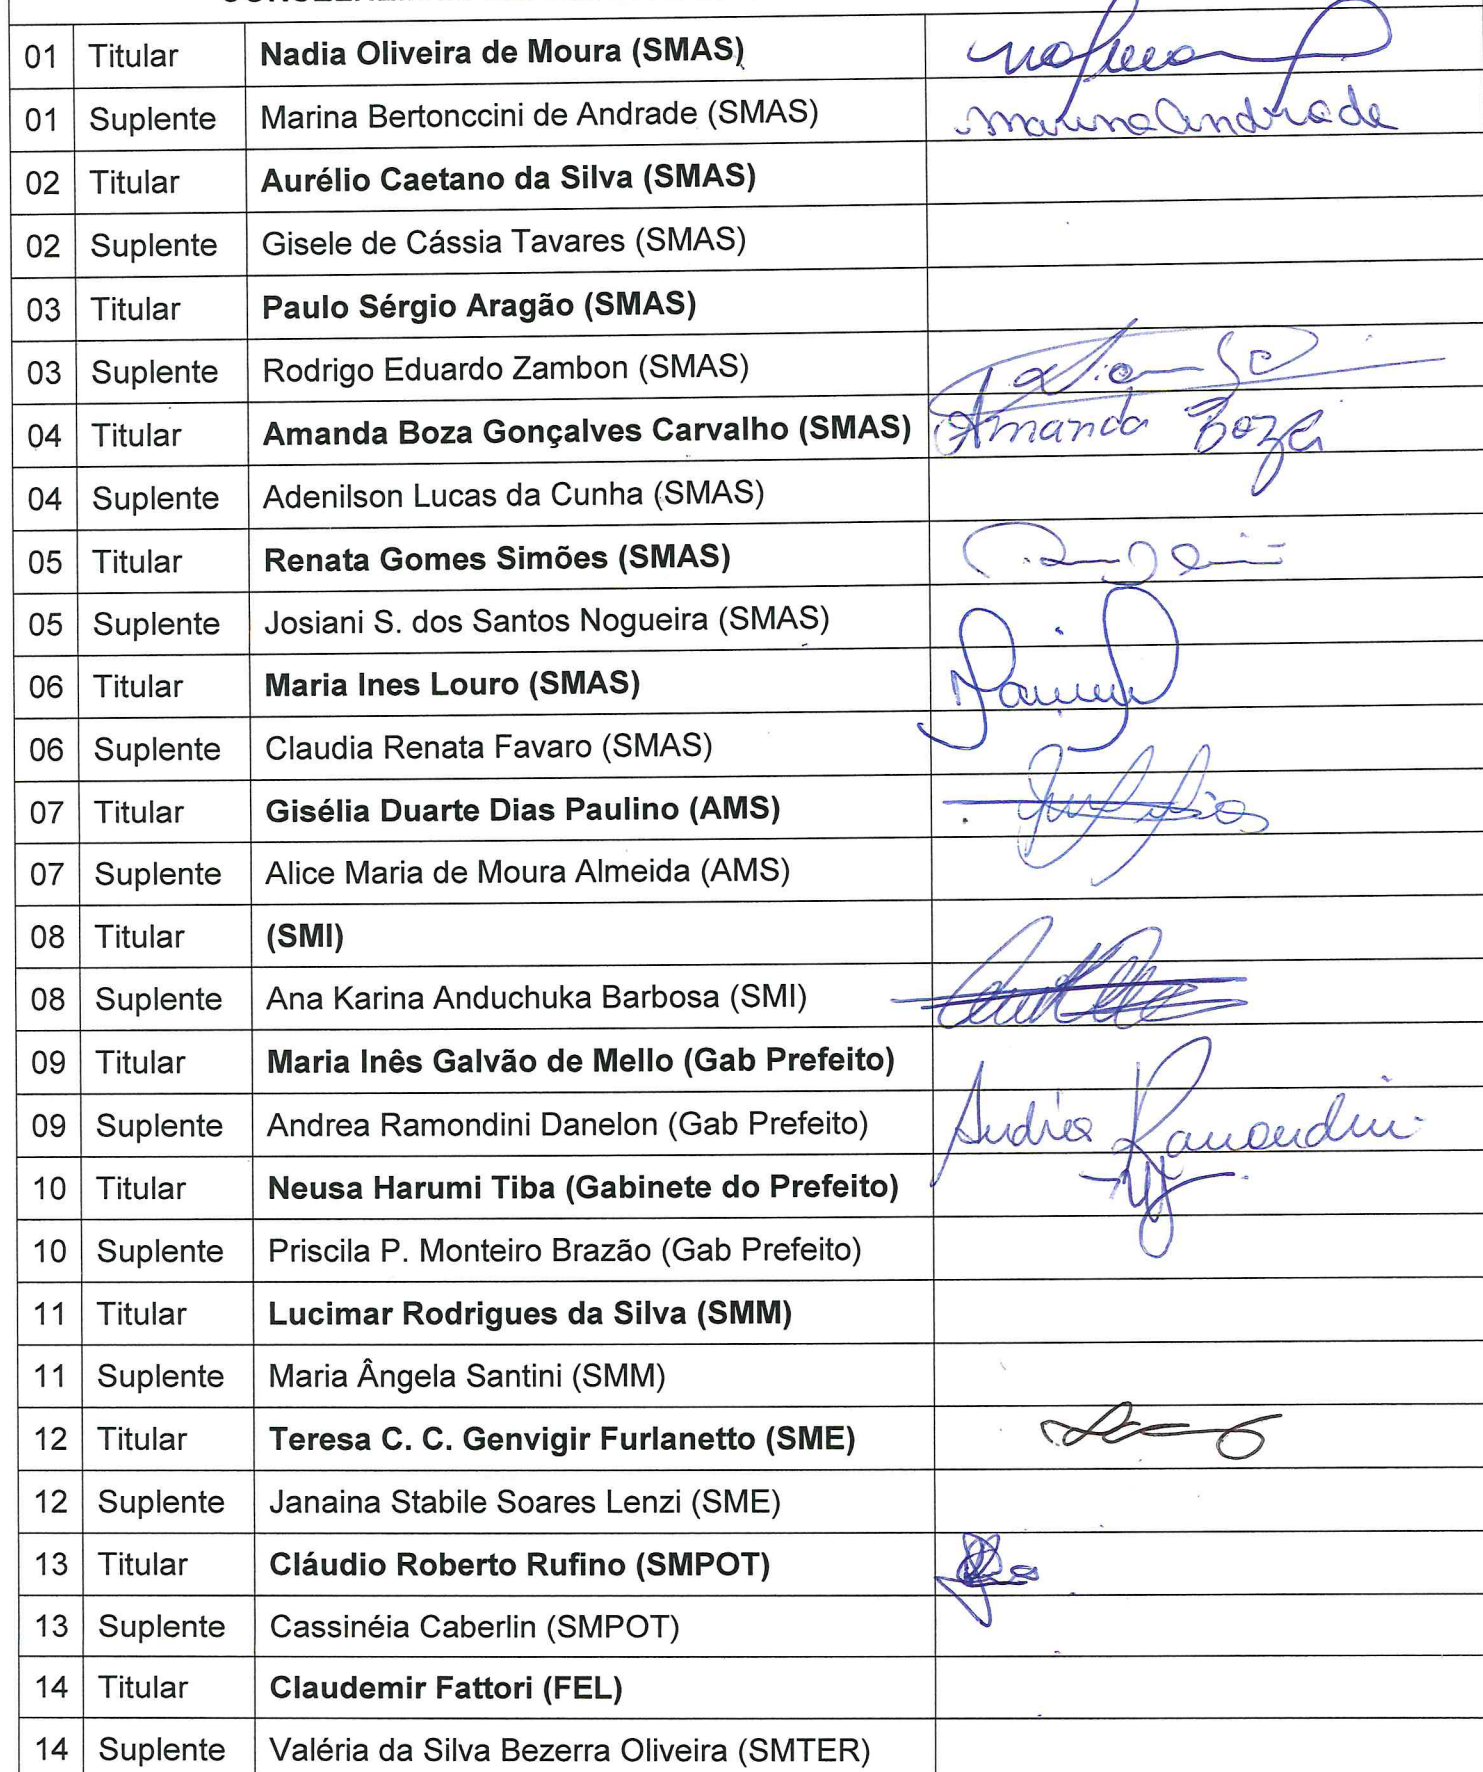 01 Titular Nadia Oliveira de Moura (SMAS)
01 Suplente Marina Bertonccini de Andrade (SMAS) Marina Andrade
02 Titular Aurélio Caetano da Silva (SMAS)
02 Suplente Gisele de Cássia Tavares (SMAS)
03 Titular Paulo Sérgio Aragão (SMAS)
03 Suplente Rodrigo Eduardo Zambon (SMAS)
04 Titular Amanda Boza Gonçalves Carvalho (SMAS) Amanda Boza
04 Suplente Adenilson Lucas da Cunha (SMAS)
05 Titular Renata Gomes Simões (SMAS)
05 Suplente Josiani S. dos Santos Nogueira (SMAS)
06 Titular Maria Ines Louro (SMAS)
06 Suplente Claudia Renata Favaro (SMAS)
07 Titular Gisélia Duarte Dias Paulino (AMS)
07 Suplente Alice Maria de Moura Almeida (AMS)
08 Titular (SMI)
08 Suplente Ana Karina Anduchuka Barbosa (SMI)
09 Titular Maria Inês Galvão de Mello (Gab Prefeito)
09 Suplente Andrea Ramondini Danelon (Gab Prefeito) Andréa Ramondini
10 Titular Neusa Harumi Tiba (Gabinete do Prefeito)
10 Suplente Priscila P. Monteiro Brazão (Gab Prefeito)
11 Titular Lucimar Rodrigues da Silva (SMM)
11 Suplente Maria Ângela Santini (SMM)
12 Titular Teresa C. C. Genvigir Furlanetto (SME)
12 Suplente Janaina Stabile Soares Lenzi (SME)
13 Titular Cláudio Roberto Rufino (SMPOT)
13 Suplente Cassinéia Caberlin (SMPOT)
14 Titular Claudemir Fattori (FEL)
14 Suplente Valéria da Silva Bezerra Oliveira (SMTER)